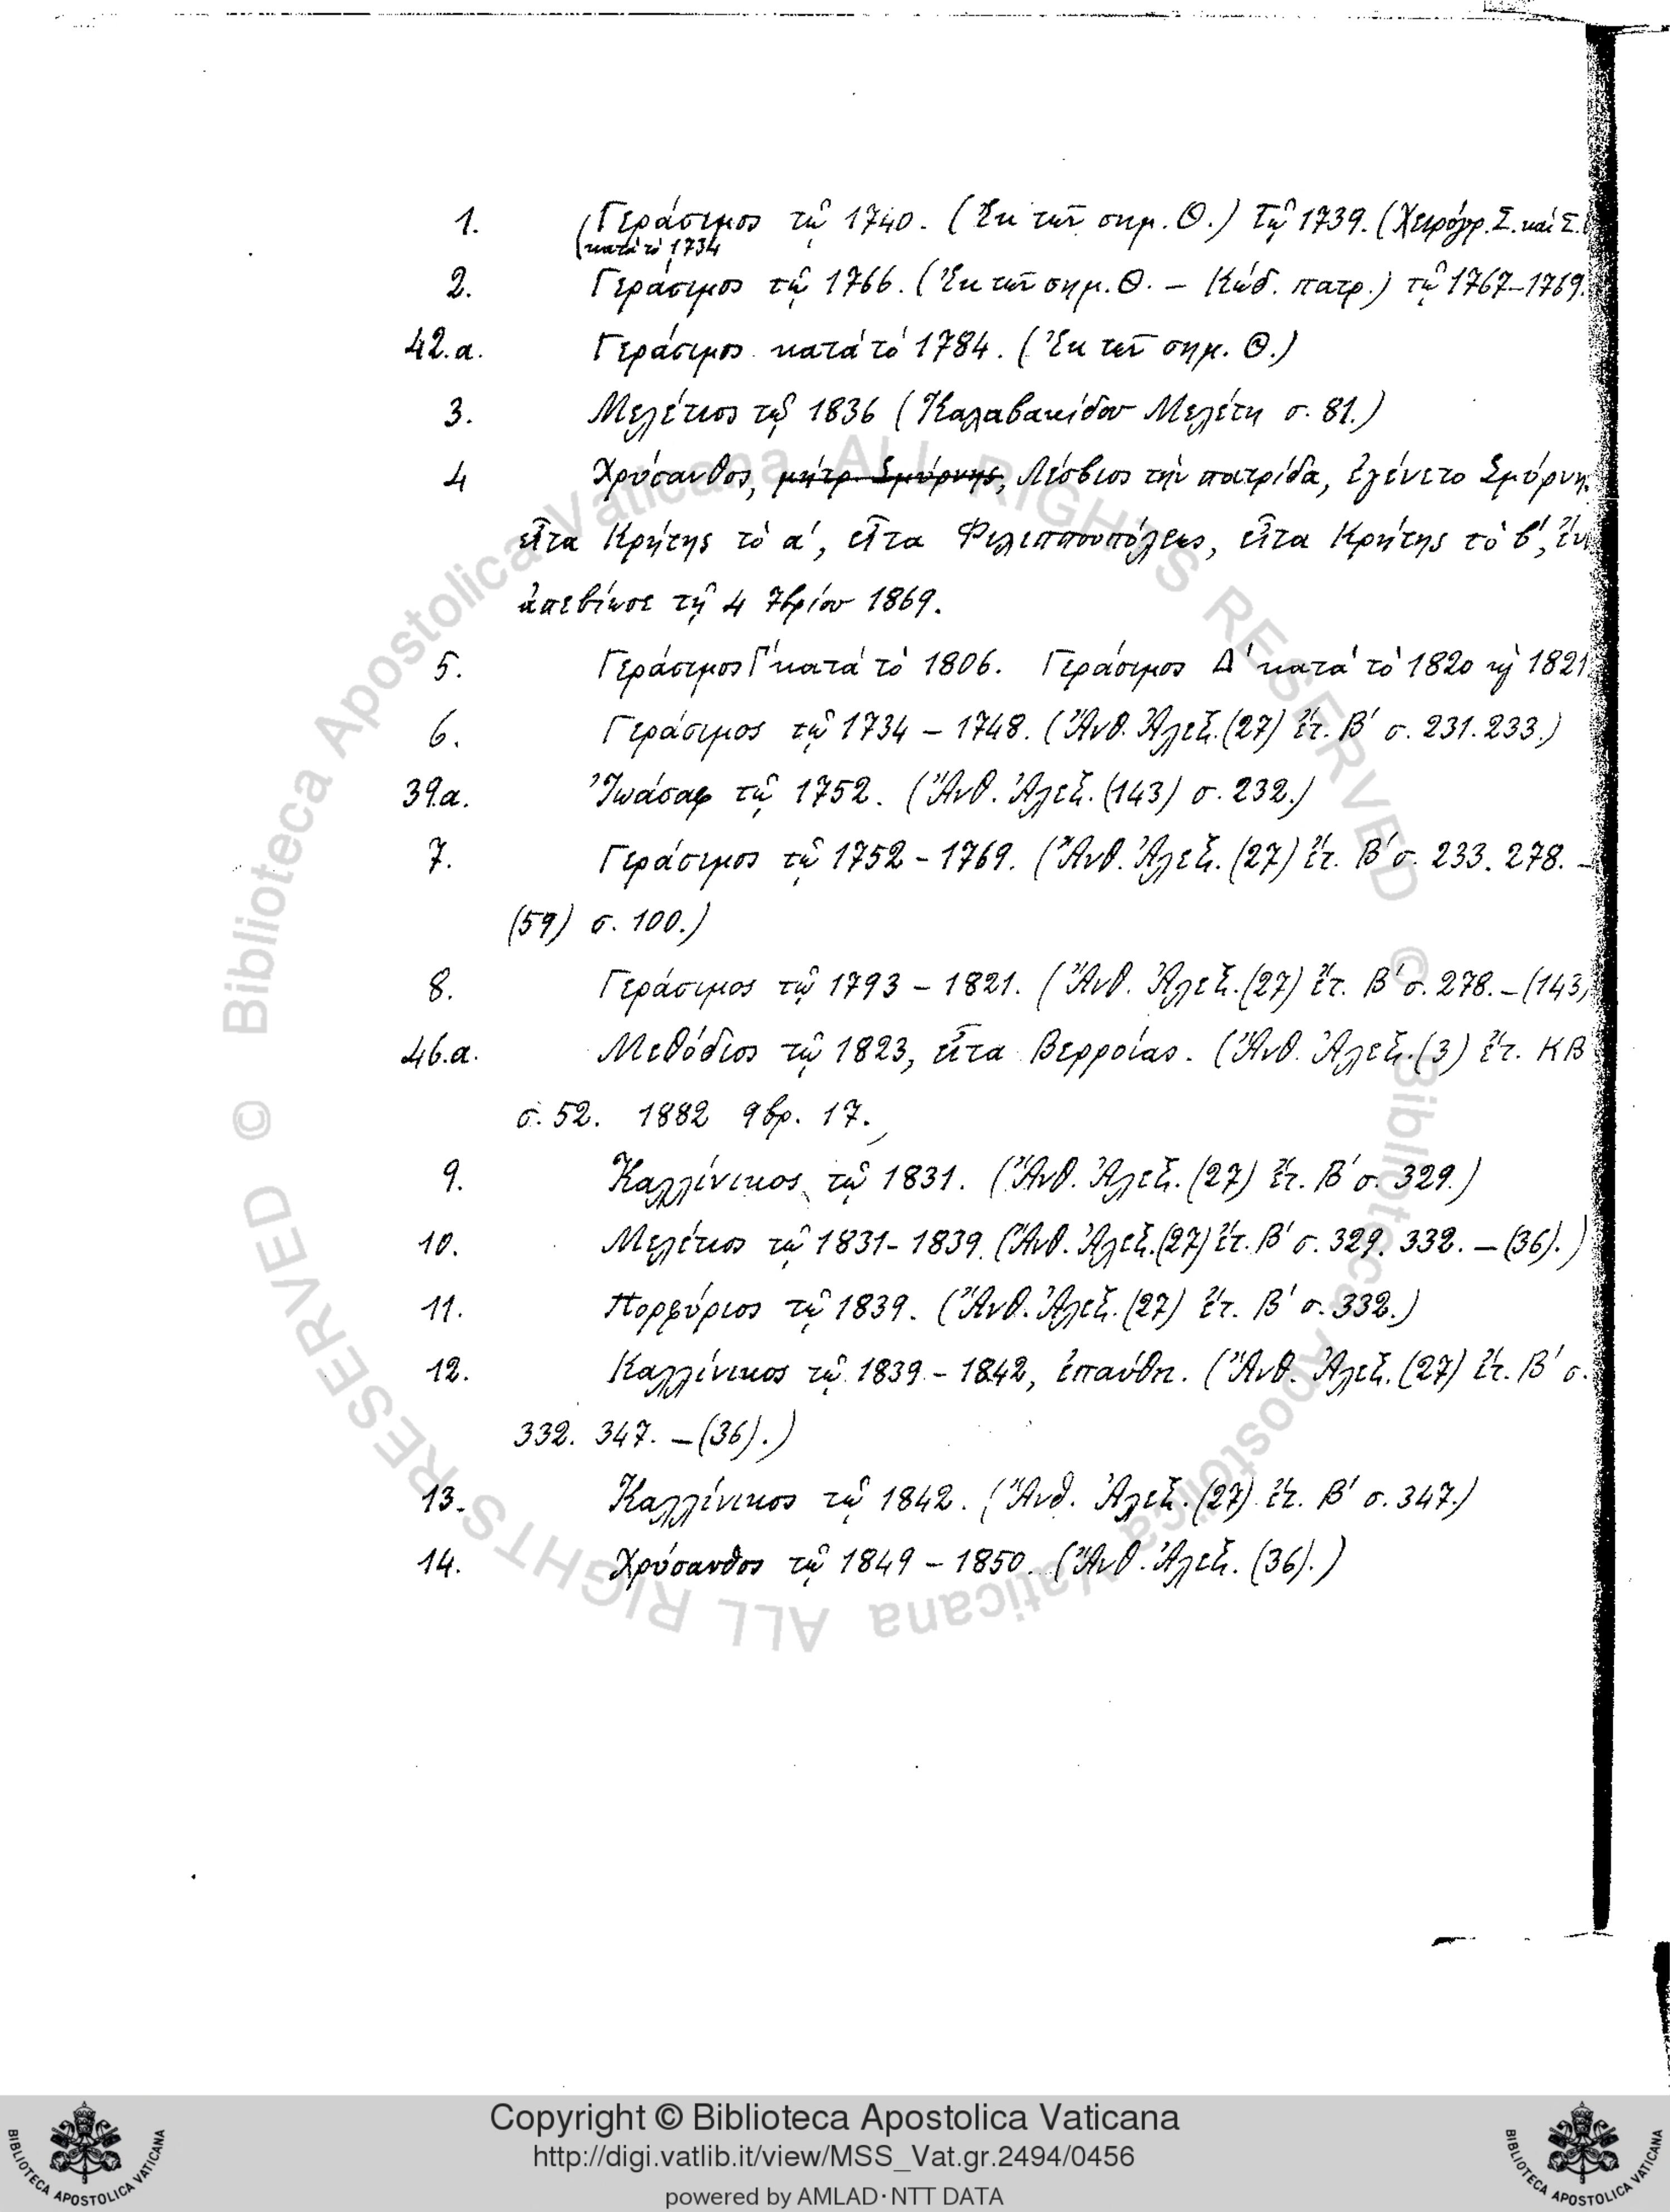 1. Γεράσιμος τῷ 1740. (Ἐκ τῶν σημ. Θ.) Τῷ 1739. (Χειρόγρ. Σ. καὶ Σ.
(κατὰ τὸ 1734
2. Γεράσιμος τῷ 1766. (Ἐκ τῶν σημ. Θ. – Κώδ. πατρ.) τῷ 1767–1769.
42.α. Γεράσιμος κατὰ τὸ 1784. (Ἐκ τῶν σημ. Θ.)
3. Μελέτιος τῷ 1836 (Καλαβακίδου Μελέτη σ. 81.)
4 Χρύσανθος, μήτρ. Σμύρνης, Λέσβιος τὴν πατρίδα, ἐγένετο Σμύρνη
εἶτα Κρήτης τὸ α´, εἶτα Φιλιππουπόλεως, εἶτα Κρήτης τὸ β´,
ἀπεβίωσε τῇ 4 7βρίου 1869.
5. Γεράσιμος Γ´ κατὰ τὸ 1806. Γεράσιμος Δ´ κατὰ τὸ 1820 ἢ 1821
6. Γεράσιμος τῷ 1734 – 1748. (Ἀνθ. Ἀλεξ. (27) ἔτ. Β´ σ. 231. 233.)
39.α. Ἰωάσαφ τῷ 1752. (Ἀνθ. Ἀλεξ. (143) σ. 232.)
7. Γεράσιμος τῷ 1752 – 1769. (Ἀνθ. Ἀλεξ. (27) ἔτ. Β´ σ. 233. 278. –
(59) σ. 100.)
8. Γεράσιμος τῷ 1793 – 1821. (Ἀνθ. Ἀλεξ. (27) ἔτ. Β´ σ. 278. – (143)
46.α. Μεθόδιος τῷ 1823, εἶτα Βερροίας. (Ἀνθ. Ἀλεξ. (3) ἔτ. ΚΒ
σ. 52. 1882 9βρ. 17.
9. Καλλίνικος τῷ 1831. (Ἀνθ. Ἀλεξ. (27) ἔτ. Β´ σ. 329.)
10. Μελέτιος τῷ 1831 – 1839. (Ἀνθ. Ἀλεξ. (27) ἔτ. Β´ σ. 329. 332. – (36).)
11. Πορφύριος τῷ 1839. (Ἀνθ. Ἀλεξ. (27) ἔτ. Β´ σ. 332.)
12. Καλλίνικος τῷ 1839 – 1842, ἐπαύθη. (Ἀνθ. Ἀλεξ. (27) ἔτ. Β´ σ.
332. 347. – (36).)
13. Καλλίνικος τῷ 1842. (Ἀνθ. Ἀλεξ. (27) ἔτ. Β´ σ. 347.)
14. Χρύσανθος τῷ 1849 – 1850. (Ἀνθ. Ἀλεξ. (36).)
© Biblioteca Apostolica Vaticana ALL RIGHTS RESERVED
© Biblioteca Apostolica Vaticana ALL RIGHTS RESERVED
Copyright © Biblioteca Apostolica Vaticana
http://digi.vatlib.it/view/MSS_Vat.gr.2494/0456
powered by AMLAD·NTT DATA
BIBLIOTECA APOSTOLICA VATICANA
BIBLIOTECA APOSTOLICA VATICANA